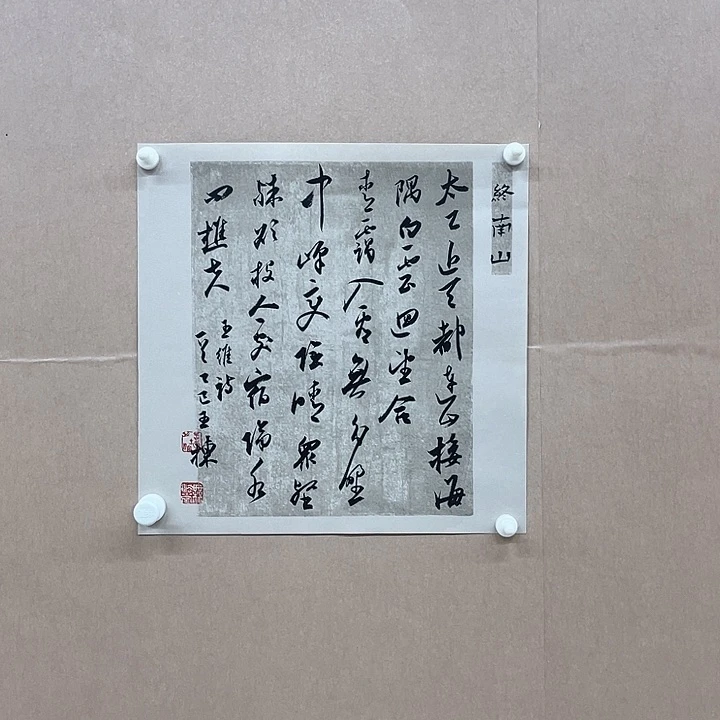 終南山
太乙近天都連山接海
隅白雲迴望合
青靄入看無分野
中峰變陰晴眾壑
殊欲投人處宿隔水
問樵夫
王維詩
乙巳王棟